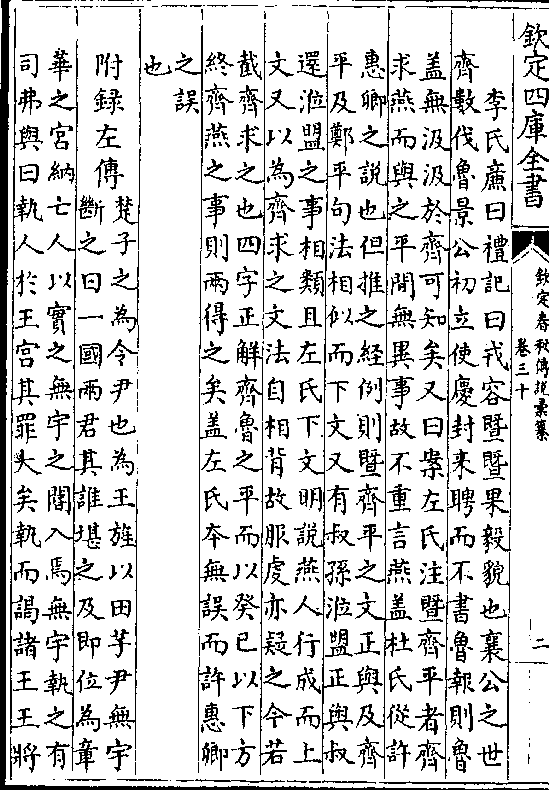 欽定四庫全書
欽定春秋傳說彙纂
卷三十
二
李氏廉曰禮記曰戎容暨暨果毅貌也襄公之世
齊數伐魯景公初立使慶封來聘而不書魯報則魯
盖無汲汲於齊可知矣又曰案左氏注暨齊平者齊
求燕而與之平間無異事故不重言燕盖杜氏從許
惠卿之說也但推之經例則暨齊平之文正與及齊
平及鄭平句法相似而下文又有叔孫涖盟正與叔
還涖盟之事相類且左氏下文明說燕人行成而上
文又以為齊求之文法自相背故服虔亦疑之今若
截齊求之也四字正解齊魯之平而以癸巳以下方
終齊燕之事則兩得之矣盖左氏夲無誤而許惠卿
之誤
也
附録左傳
楚子之為令尹也為王旌以田芋尹無宇
斷之曰一國兩君其誰堪之及即位為章
華之宮納亡人以實之無宇之閽入焉無宇執之有
司弗與曰執人於王宮其罪大矣執而謁諸王王將